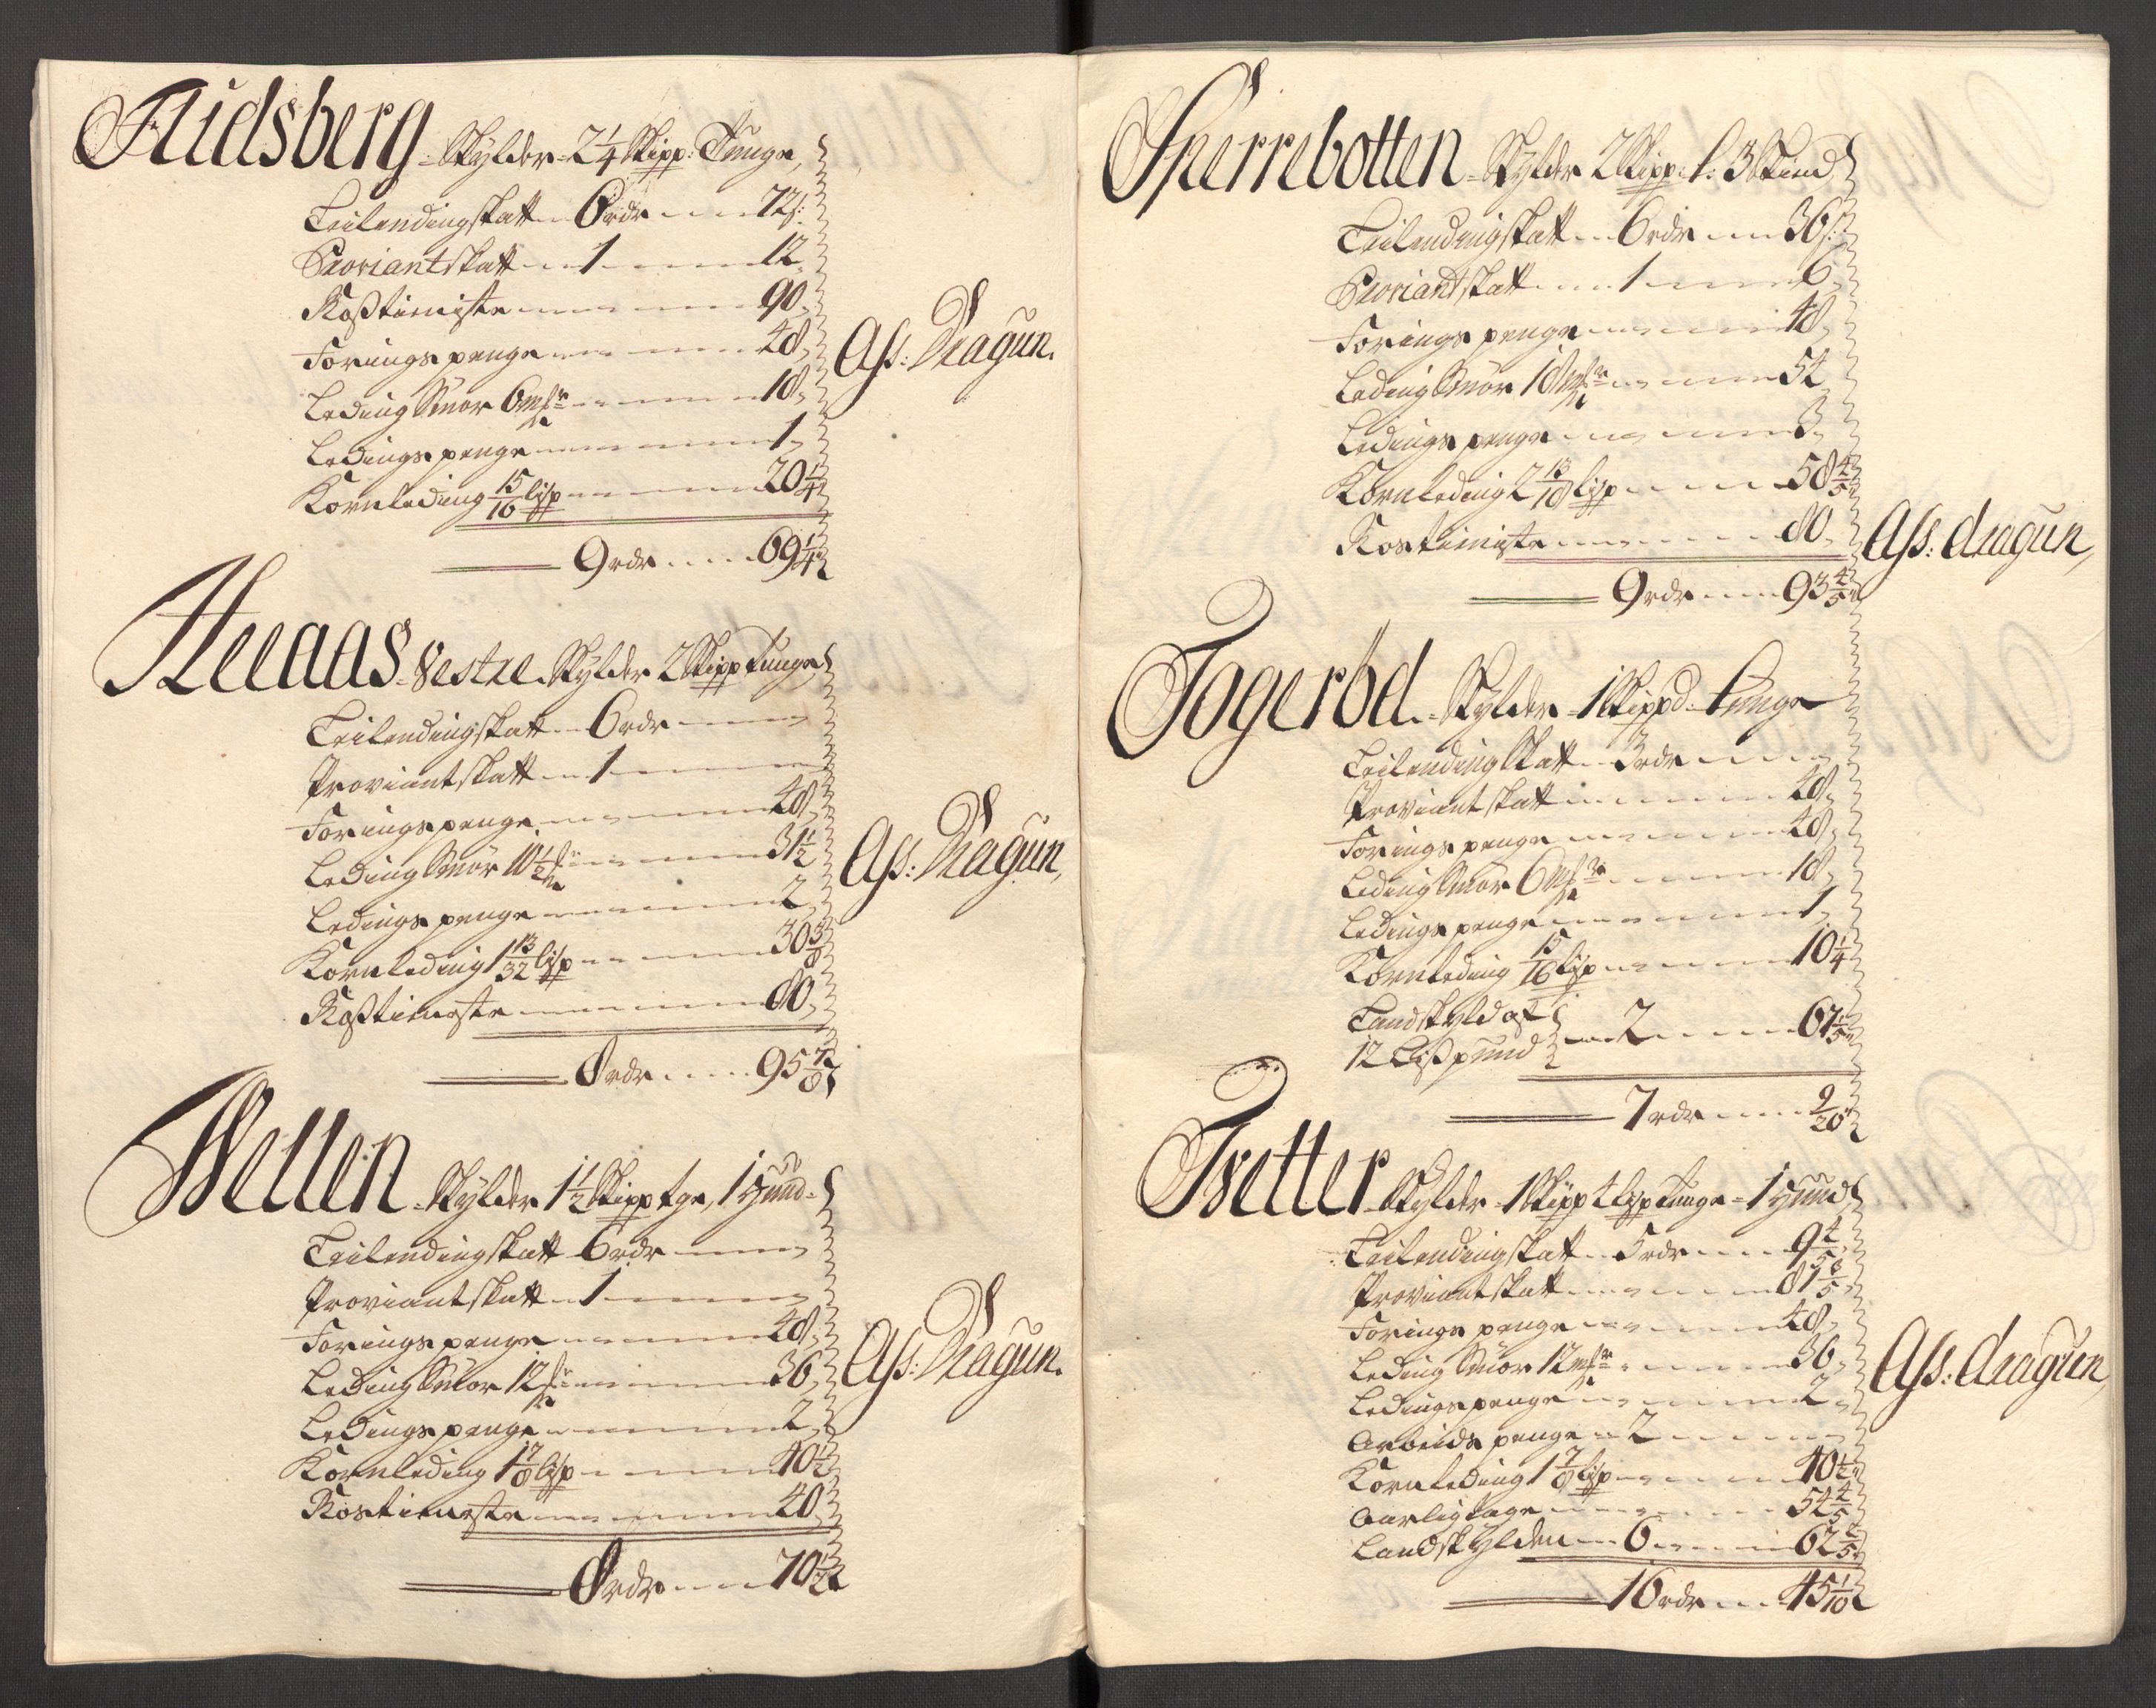 Ridsberg Skylder 2 1/4 Skipp: Tunge,
Leilendingskatt 6 rdr 72 s:
Proviantskatt 1 12
Rosstieniste 90
Foringspenge 48
Leding Smör 6 mkr 18
Ledings penge 1
Kornleding 15/16 lisp 20 1/4
9 rdr 69 1/4
Ass: Dragun.
Vestre Skylder 2 Skipp tunge
Leilendingskatt 6 rdr
Proviantskatt 1
Foringspenge 48
Leding Smör 10 1/2 31 1/2
Ledings penge 2
Kornleding 1 13/32 lisp 30 3/8
Rosstieneste 80
8 rdr 95 7/8
Ass: Dragun,
Skylder 1 1/2 Skipp tge, 1 hund
Leilendingskatt 6 rdr
Proviantskatt 1
Forings penge 48
Leding Smör 12 36
Ledings penge 2
Kornleding 1 7/8 lisp 40 1/2
Rostieneste 40
8 rdr 70 1/2
Ass: Dragun.
Sperrebotten Skylder 2 Skipp: t: 3 Skind
Leilendingskatt 6 rdr 36 s:
Proviandskatt 1 6
Forings penge 48
Leding Smör 18 mkr 54
Ledings penge 3
Kornleding 2 13/18 lisp 58 4/5
Rostieniste 80
9 rdr 93 4/5
Ass: dragun,
Togeröd Skylder 1 Skippd: tunge
Leilendingskatt 3 rdr
Proviantskatt 48
Forings penge 48
Leding Smör 6 mkr 18
Ledings penge 1
Kornleding 15/16 lisp 10 1/4
Landskyld af
12 Lisspund 2 67 1/5
7 rdr 9/20
Tvetter Skylder 1 Skipp 4 lisp tunge 1 hund
Leilendingskatt 5 rdr 9 4/5
Proviantskatt 81 3/5
Forings penge 48
Leding Smör 12 mkr 36
Ledings penge 2
Arbeids penge 2
Kornleding 1 7/8 lisp 40 1/2
Aarligtage 54 4/5
Landskylden 6 62 2/5
16 rdr 45 1/10
Ass: dragun,